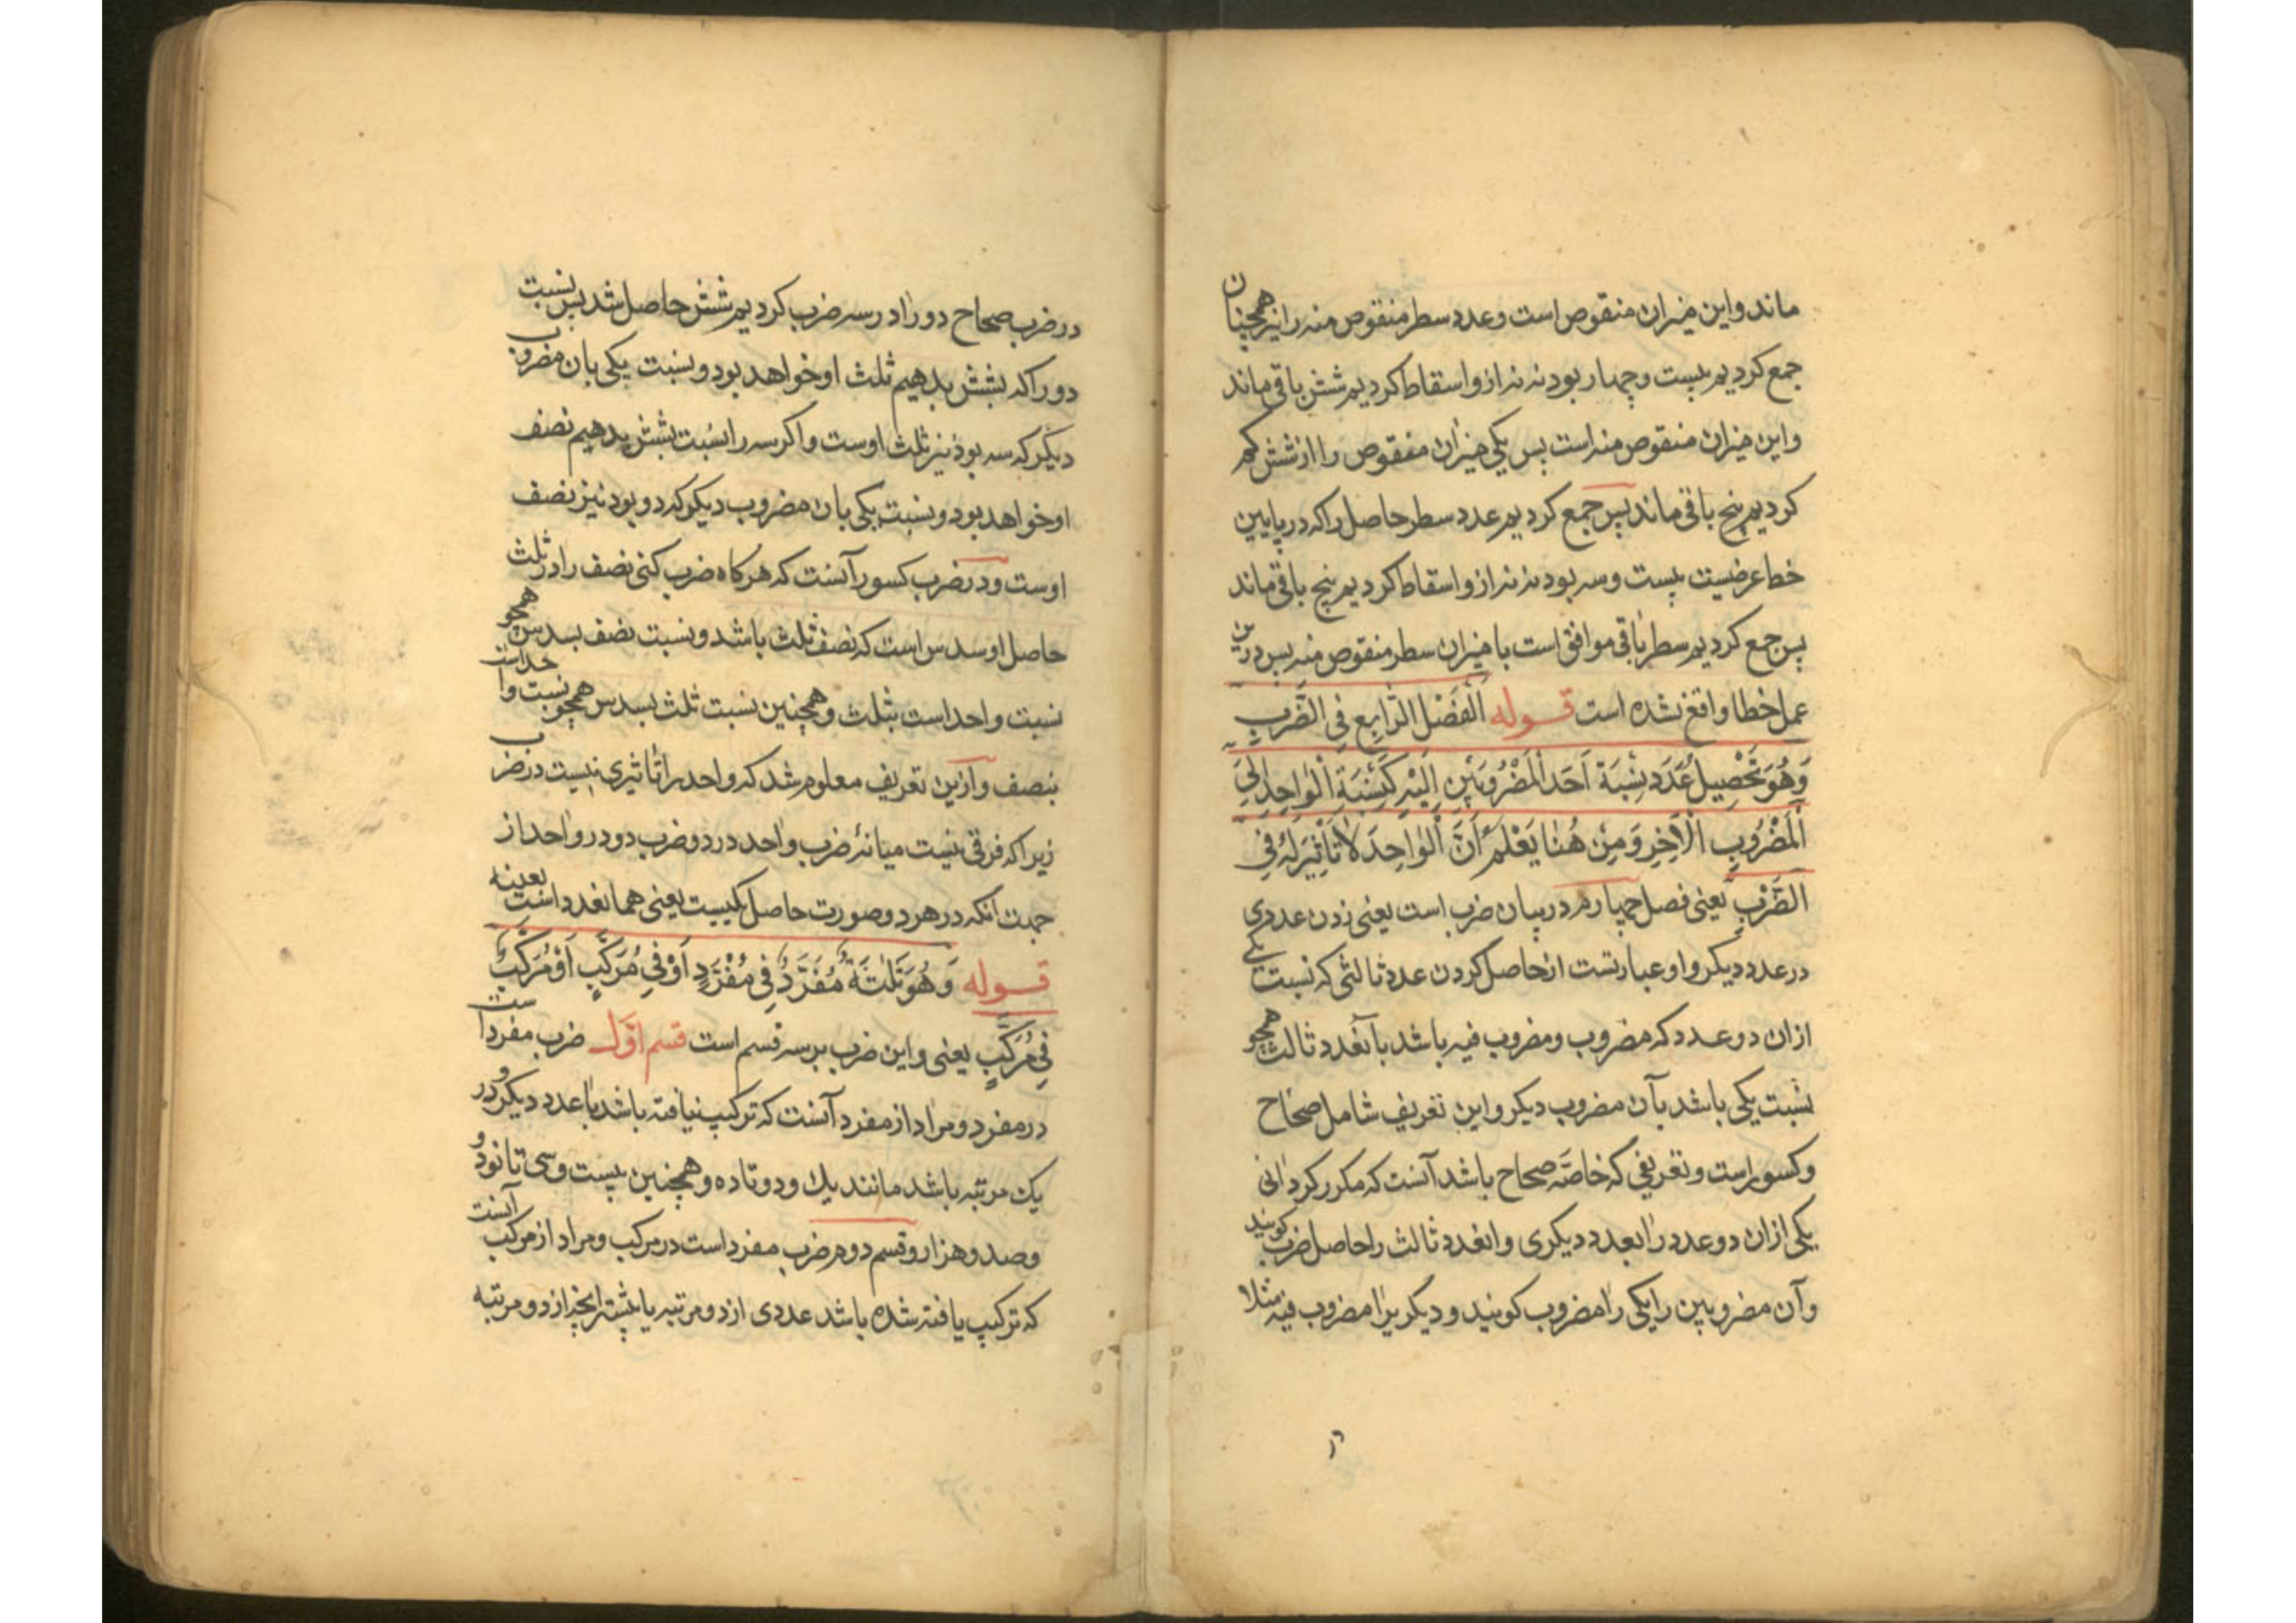 ماند و این میزان منقوص است و عدد سطر منقوص منه را نیز همچنان
جمع کردیم بیست و چهار بود نه نه ازو اسقاط کردیم شش باقی ماند
و این میزان منقوص منه است پس یکی میزان منقوص را از شش کم
کردیم پنج باقی ماند پس جمع کردیم عدد سطر حاصل را که در پایین
خط عرضیست بیست و سه بود نه نه ازو اسقاط کردیم پنج باقی ماند
پس جمع کردیم سطر باقی موافق است با میزان سطر منقوص منه پس درین
عمل خطا واقع نشده است قوله اَلْفَصْلُ الرَّابِع فِی الضَّرْبِ
وَهُوَ تَحْصِیلُ عَدَدٍ نِسْبَة اَحَدِ الْمَضْرُوبَیْنِ اِلَیْهِ کَنِسْبَةِ الْوَاحِدِ اِلَی
الْمَضْرُوبِ الْآخِرِ وَمِنْ هُنٰا یَعْلَم اَنَّ الْوٰاحِدَ لاٰ تَأْثِیرَ لَهُ فِی
الضَّرْبِ یعنی فصل چهارم در بیان ضرب است یعنی زدن عددی
در عدد دیکر و او عبارتست از حاصل کردن عدد ثالثی که نسبت یکی
ازان دو عدد که مضروب و مضروب فیه باشد بآنعدد ثالث همچو
نسبت یکی باشد بآن مضروب دیکر و این تعریف شامل صحاح
و کسور است و تعریفی که خاصّه صحاح باشد آنست که مکرر کردانی
یکی ازان دو عدد را بعدد دیکری و انعدد ثالث را حاصل ضرب کویند
و آن مضروبین را یکی را مضروب کویند و دیکریرا مضروب فیه مثلا
در ضرب صحاح دو را در سه ضرب کردیم شش حاصل شد پس نسبت
دو را که بشش بدهیم ثلث او خواهد بود و نسبت یکی بان مضروب
دیکر که سه بود نیز ثلث اوست و اکر سه را نسبت بشش بدهیم نصف
او خواهد بود و نسبت یکی بان مضروب دیکر که دو بود نیز نصف
اوست و در ضرب کسور آنست که هرکاه ضرب کنی نصف را در ثلث
حاصل او سدس است که نصف ثلث باشد و نسبت نصف بسدس همچو
نسبت واحد است بثلث و همچنین نسبت ثلث بسدس همچو نسبت واحد است
بنصف و ازین تعریف معلوم شد که واحد را تاثیری نیست در ضرب
زیرا که فرقی نیست میانهٔ ضرب واحد در دو و ضرب دو در واحد از
جهت انکه در هر دو صورت حاصل یکیست یعنی همانعدد است بعینه
قوله وَهُوَ ثَلٰثَة مُفْرَدٌ فِی مُفْرَدٍ اَوْ فِی مُرَکَّبٍ اَوْ مُرَکَّبٌ
فِی مُرَکَّبٍ یعنی و این ضرب بر سه قسم است قسم اوّل ضرب مفرد است
در مفرد و مراد از مفرد آنست که ترکیب نیافته باشد با عدد دیکر و در
یک مرتبه باشد مانند یک و دو تا ده و همچنین بیست و سی تا نود و
و صد و هزار و قسم دوم ضرب مفرد است در مرکب و مراد از مرکب آنست
که ترکیب یافته شده باشد عددی از دو مرتبه یا بیشتر از دو مرتبه